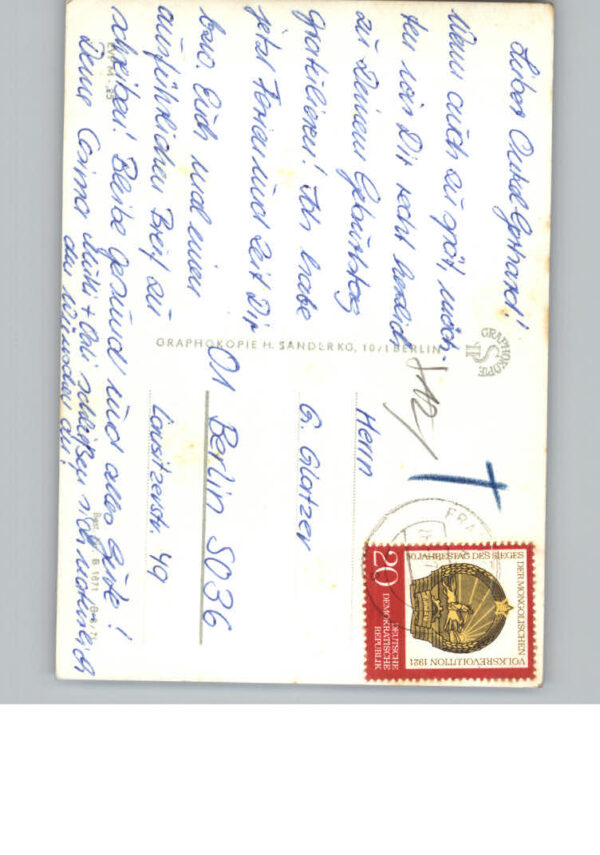 Lieber Onkel Gerhard!
Wenn auch zu spät, möch-
ten wir Dir recht herzlich
zu Deinem Geburtstag
gratulieren! Ich habe
jetzt Ferien und Zeit Dir
bzw. Euch mal einen
ausführlichen Brief zu
schreiben! Bleibe gesund und alles Gute!
Deine Cosima
GRAPHOKOPIE H. SANDER KG, 1071 BERLIN
GRAPHOKOPIE
Herrn
G. Glatzer
O1 Berlin SO36
Lausitzerstr. 49
50. JAHRESTAG DES SIEGES
DER MONGOLISCHEN
VOLKSREVOLUTION 1921
20
DEUTSCHE
DEMOKRATISCHE
REPUBLIK